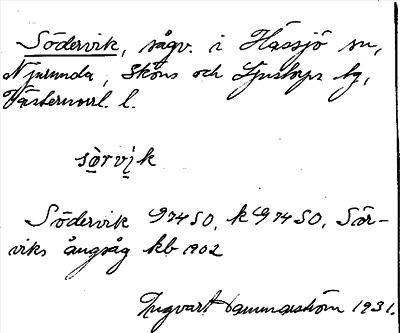 Södervik, sågv. i Hässjö sn,
Njurunda, Sköns och Ljustorps tg,
Västernorrl. l.
sörvik
Södervik G74SO, k G74SO, Sör-
viks ångsåg kb 1902
Ingvart Hammarström 1931.